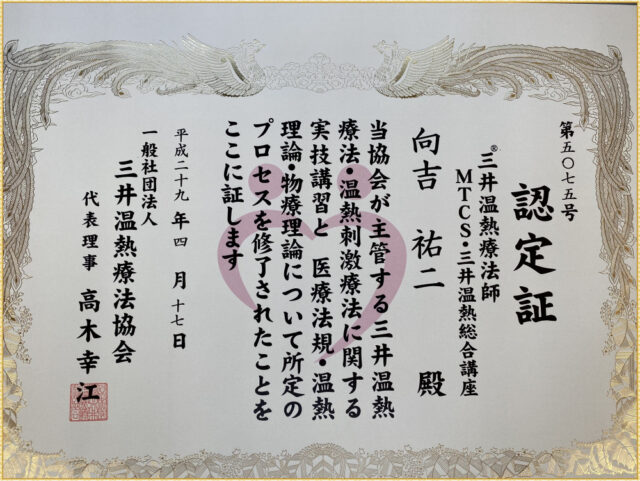 第五〇七五号
認定証
®三井温熱療法師
MTCS・三井温熱総合講座
向吉 祐二 殿
当協会が主管する三井温熱
療法・温熱刺激療法に関する
実技講習と 医療法規・温熱
理論・物療理論について所定の
プロセスを修了されたことを
ここに証します
平成二十九年四月十七日
一般社団法人
三井温熱療法協会
代表理事 高木幸江